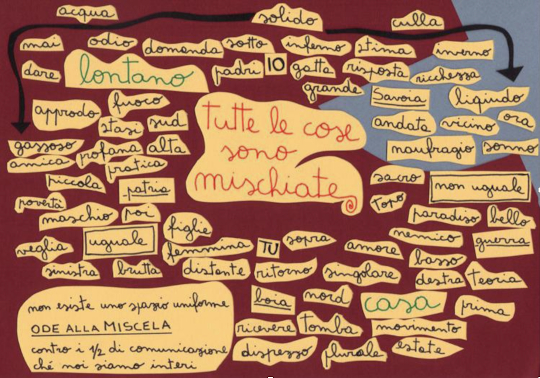 acqua
solido
culla
mai
odio
domanda
sotto
inferno
stima
inverno
dare
lontano
padri
IO
gatta
risposta
ricchezza
grande
Savoia
liquido
approdo
fuoco
stasi
sud
tutte le cose
sono
mischiate
andata
vicino
ora
gassoso
profana
alta
naufragio
sonno
amica
pratica
piccola
patria
sacro
topo
non uguale
povertà
maschio
poi
figlie
paradiso
bello
veglia
uguale
femmina
TU
sopra
amore
nemico
guerra
basso
sinistra
brutta
distante
ritorno
singolare
destra
teoria
boia
nord
casa
prima
non esiste uno spazio uniforme
ODE ALLA MISCELA
contro i 1/2 di comunicazione
ché noi siamo interi
ricevere
tomba
movimento
disprezzo
plurale
estate